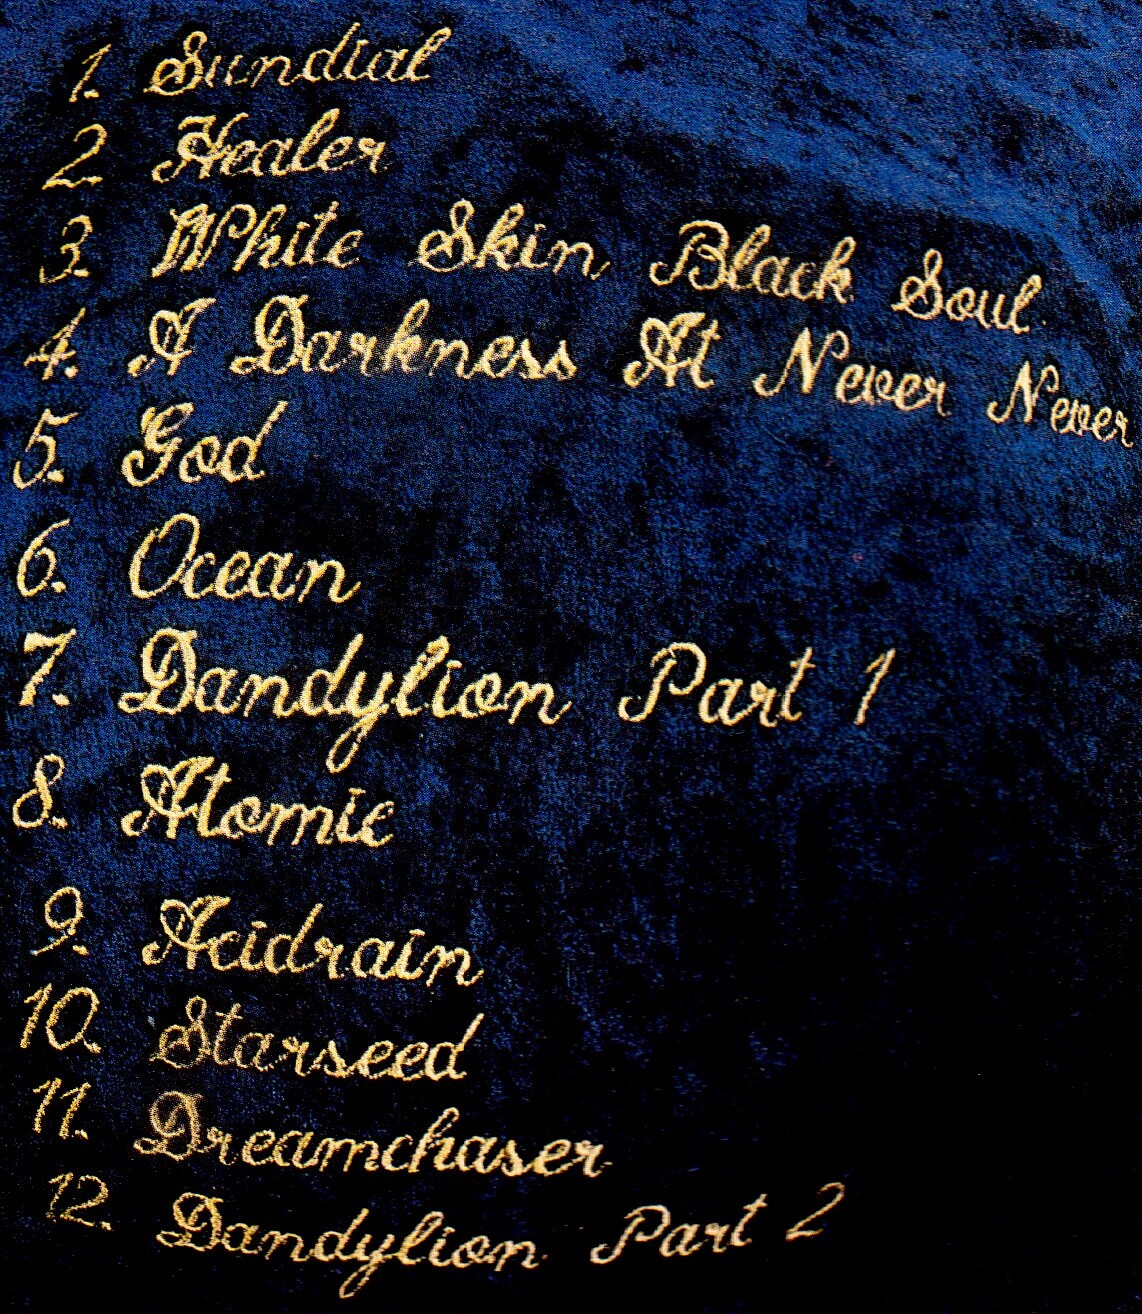 1. Sundial
2. Healer
3. White Skin Black Soul
4. A Darkness At Never Never
5. God
6. Ocean
7. Dandylion Part 1
8. Atomic
9. Acidrain
10. Starseed
11. Dreamchaser
12. Dandylion Part 2